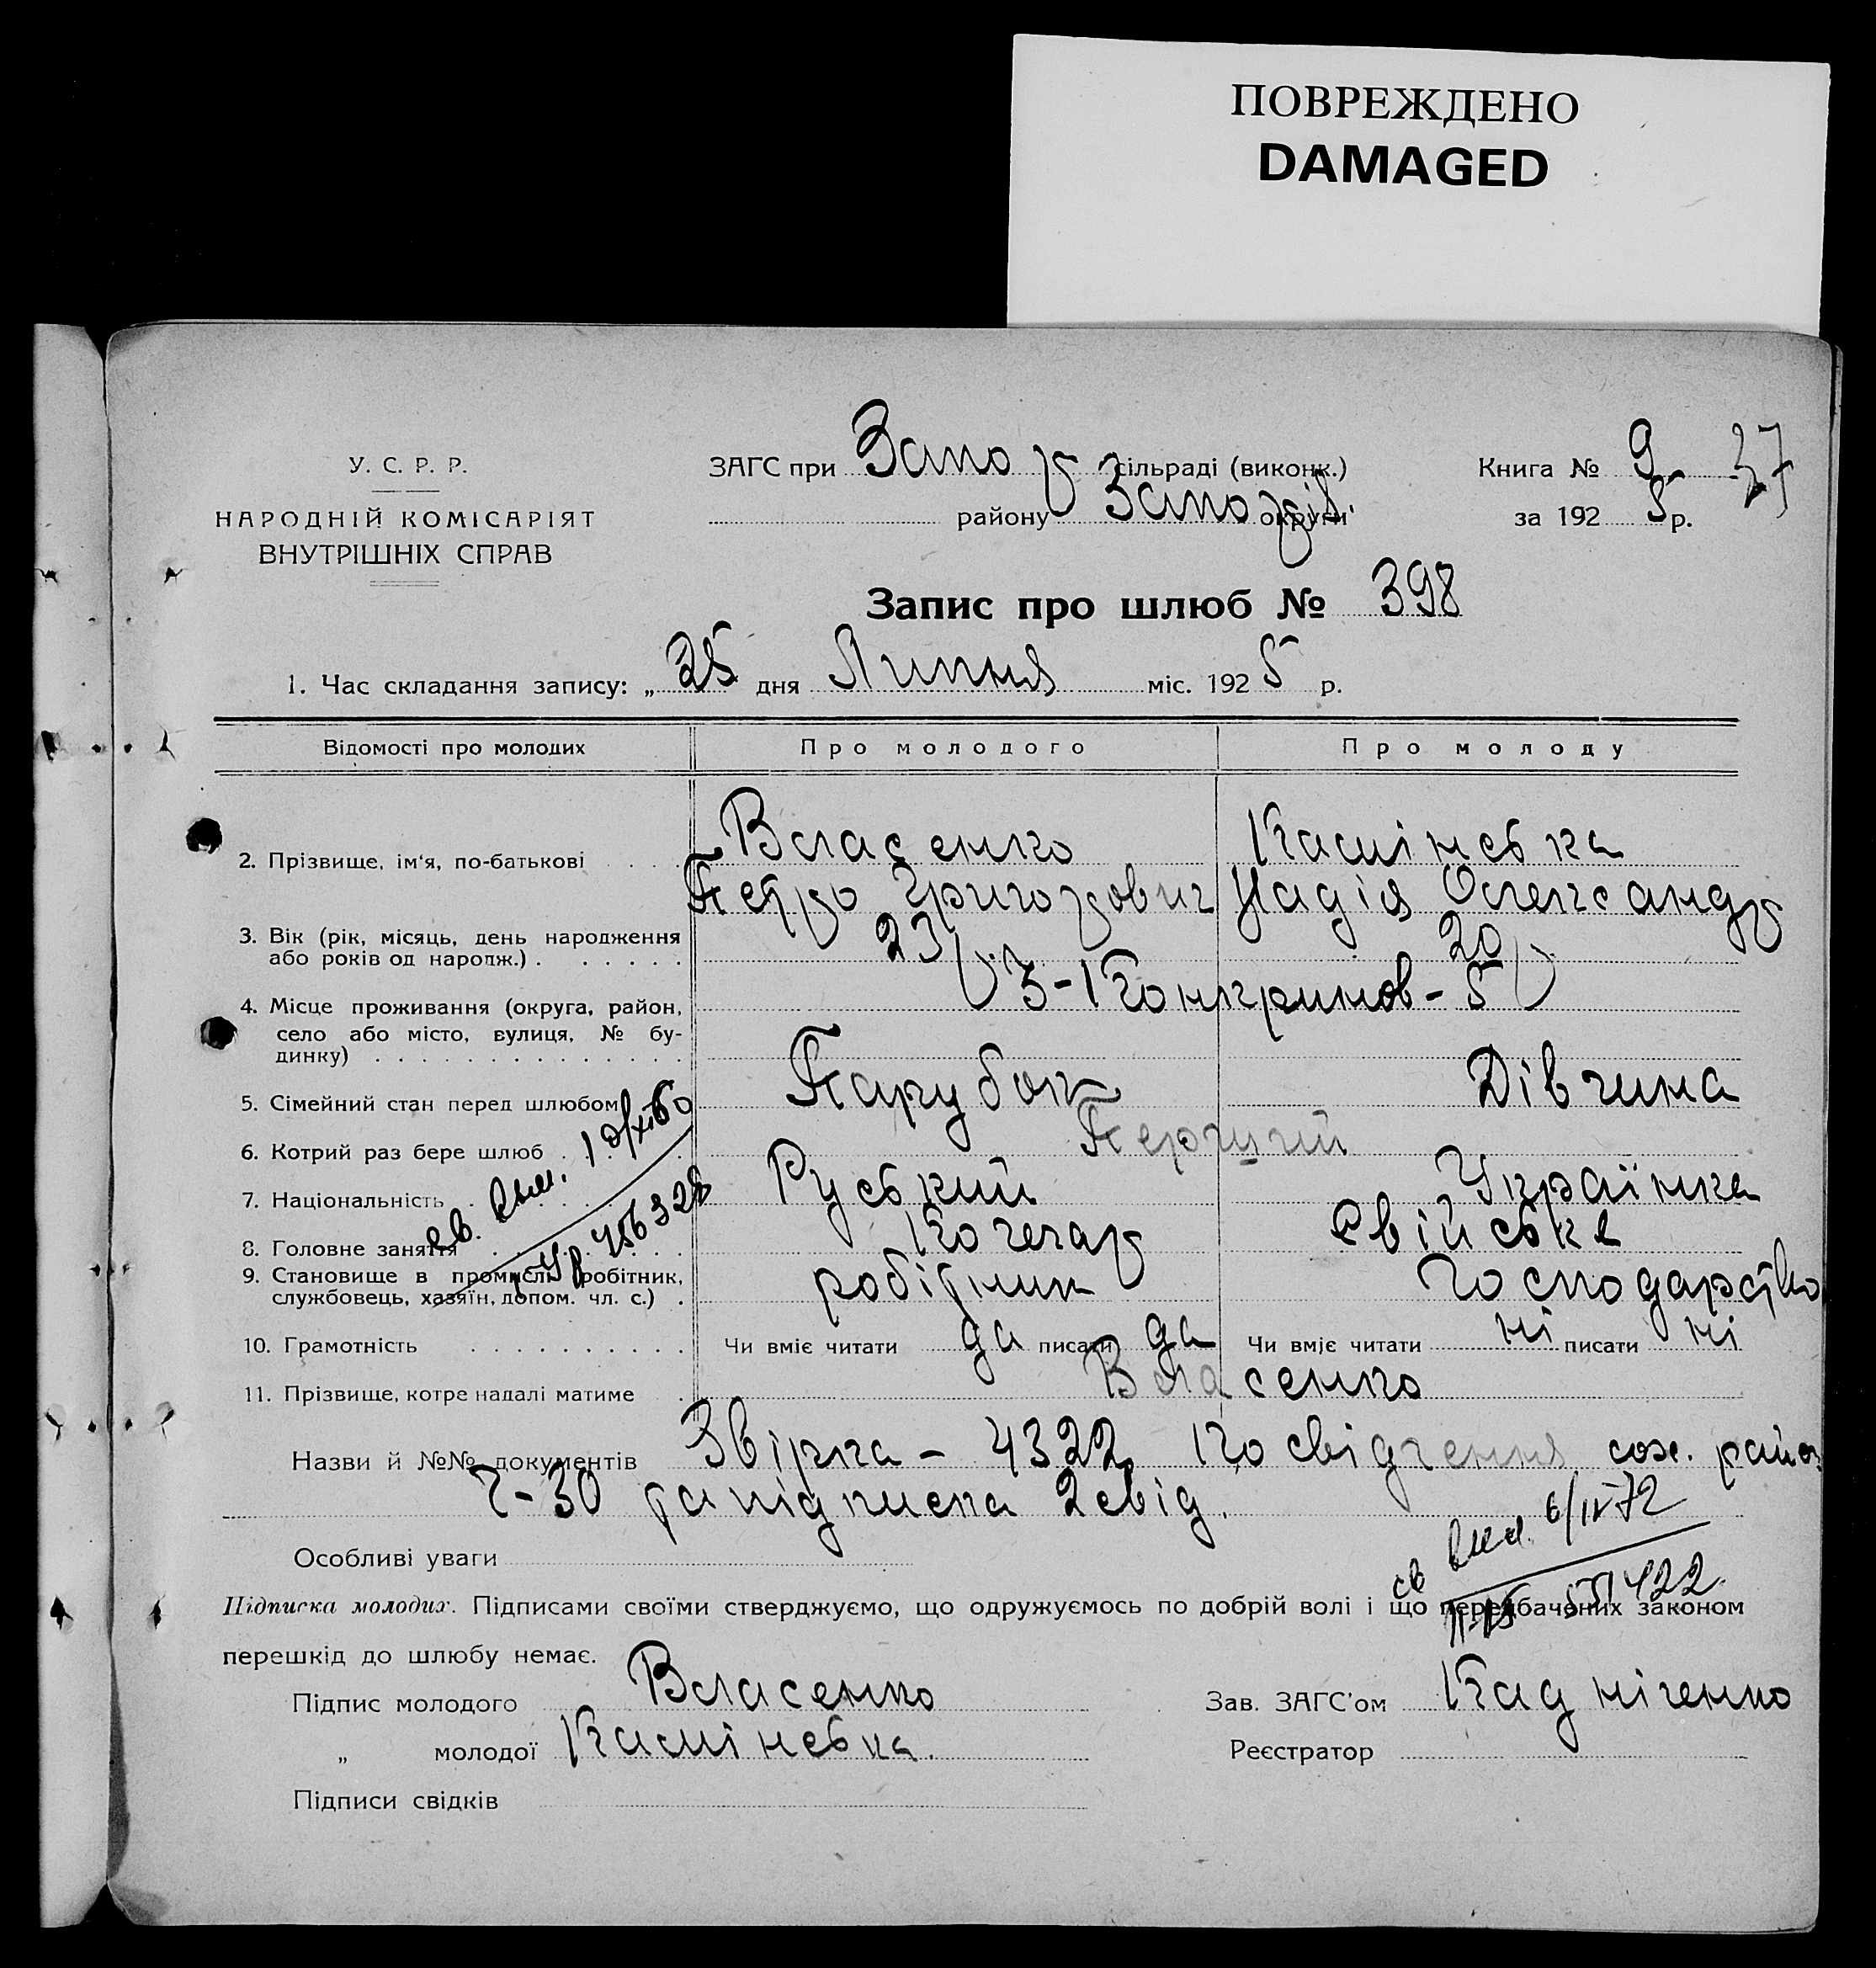 ПОВРЕЖДЕНО
DAMAGED
У. С. Р. Р.
НАРОДНІЙ КОМІСАРІЯТ
ВНУТРІШНІХ СПРАВ
ЗАГС при Запор сільраді (виконк.)
району Запоріз. округи
Книга № 9 37
за 1925 р.
Запис про шлюб № 398
1. Час складання запису: „ 25 дня Липня міс. 1925 р.
Відомості про молодих Про молодого Про молоду
2. Прізвище, ім'я, по-батькові Власенко Камінська
Петро Григорович Надія Олександр
3. Вік (рік, місяць, день народження або років од народж.) 23 р. 20 р.
4. Місце проживання (округа, район, село або місто, вулиця, № будинку) 5
5. Сімейний стан перед шлюбом Парубок Дівчина
6. Котрий раз бере шлюб Перший
7. Національність Руський Українка
8. Головне заняття Кочегар свійське
9. Становище в промислі (робітник, службовець, хазяїн, допом. чл. с.) робітник господарство
10. Грамотність Чи вміє читати да писати да Чи вміє читати ні писати ні
11. Прізвище, котре надалі матиме Власенко
Назви й №№ документів Звірка - 4322 Посвідчення
Ч-30 та підписка 2 свід.
Особливі уваги
св. выд. 6/IV-72
551422
Підписка молодих. Підписами своїми стверджуємо, що одружуємось по добрій волі і що передбачених законом
перешкід до шлюбу немає.
Підпис молодого Власенко
„ молодої Камінська.
Підписи свідків
Зав. ЗАГС'ом Кадніченко
Реєстратор